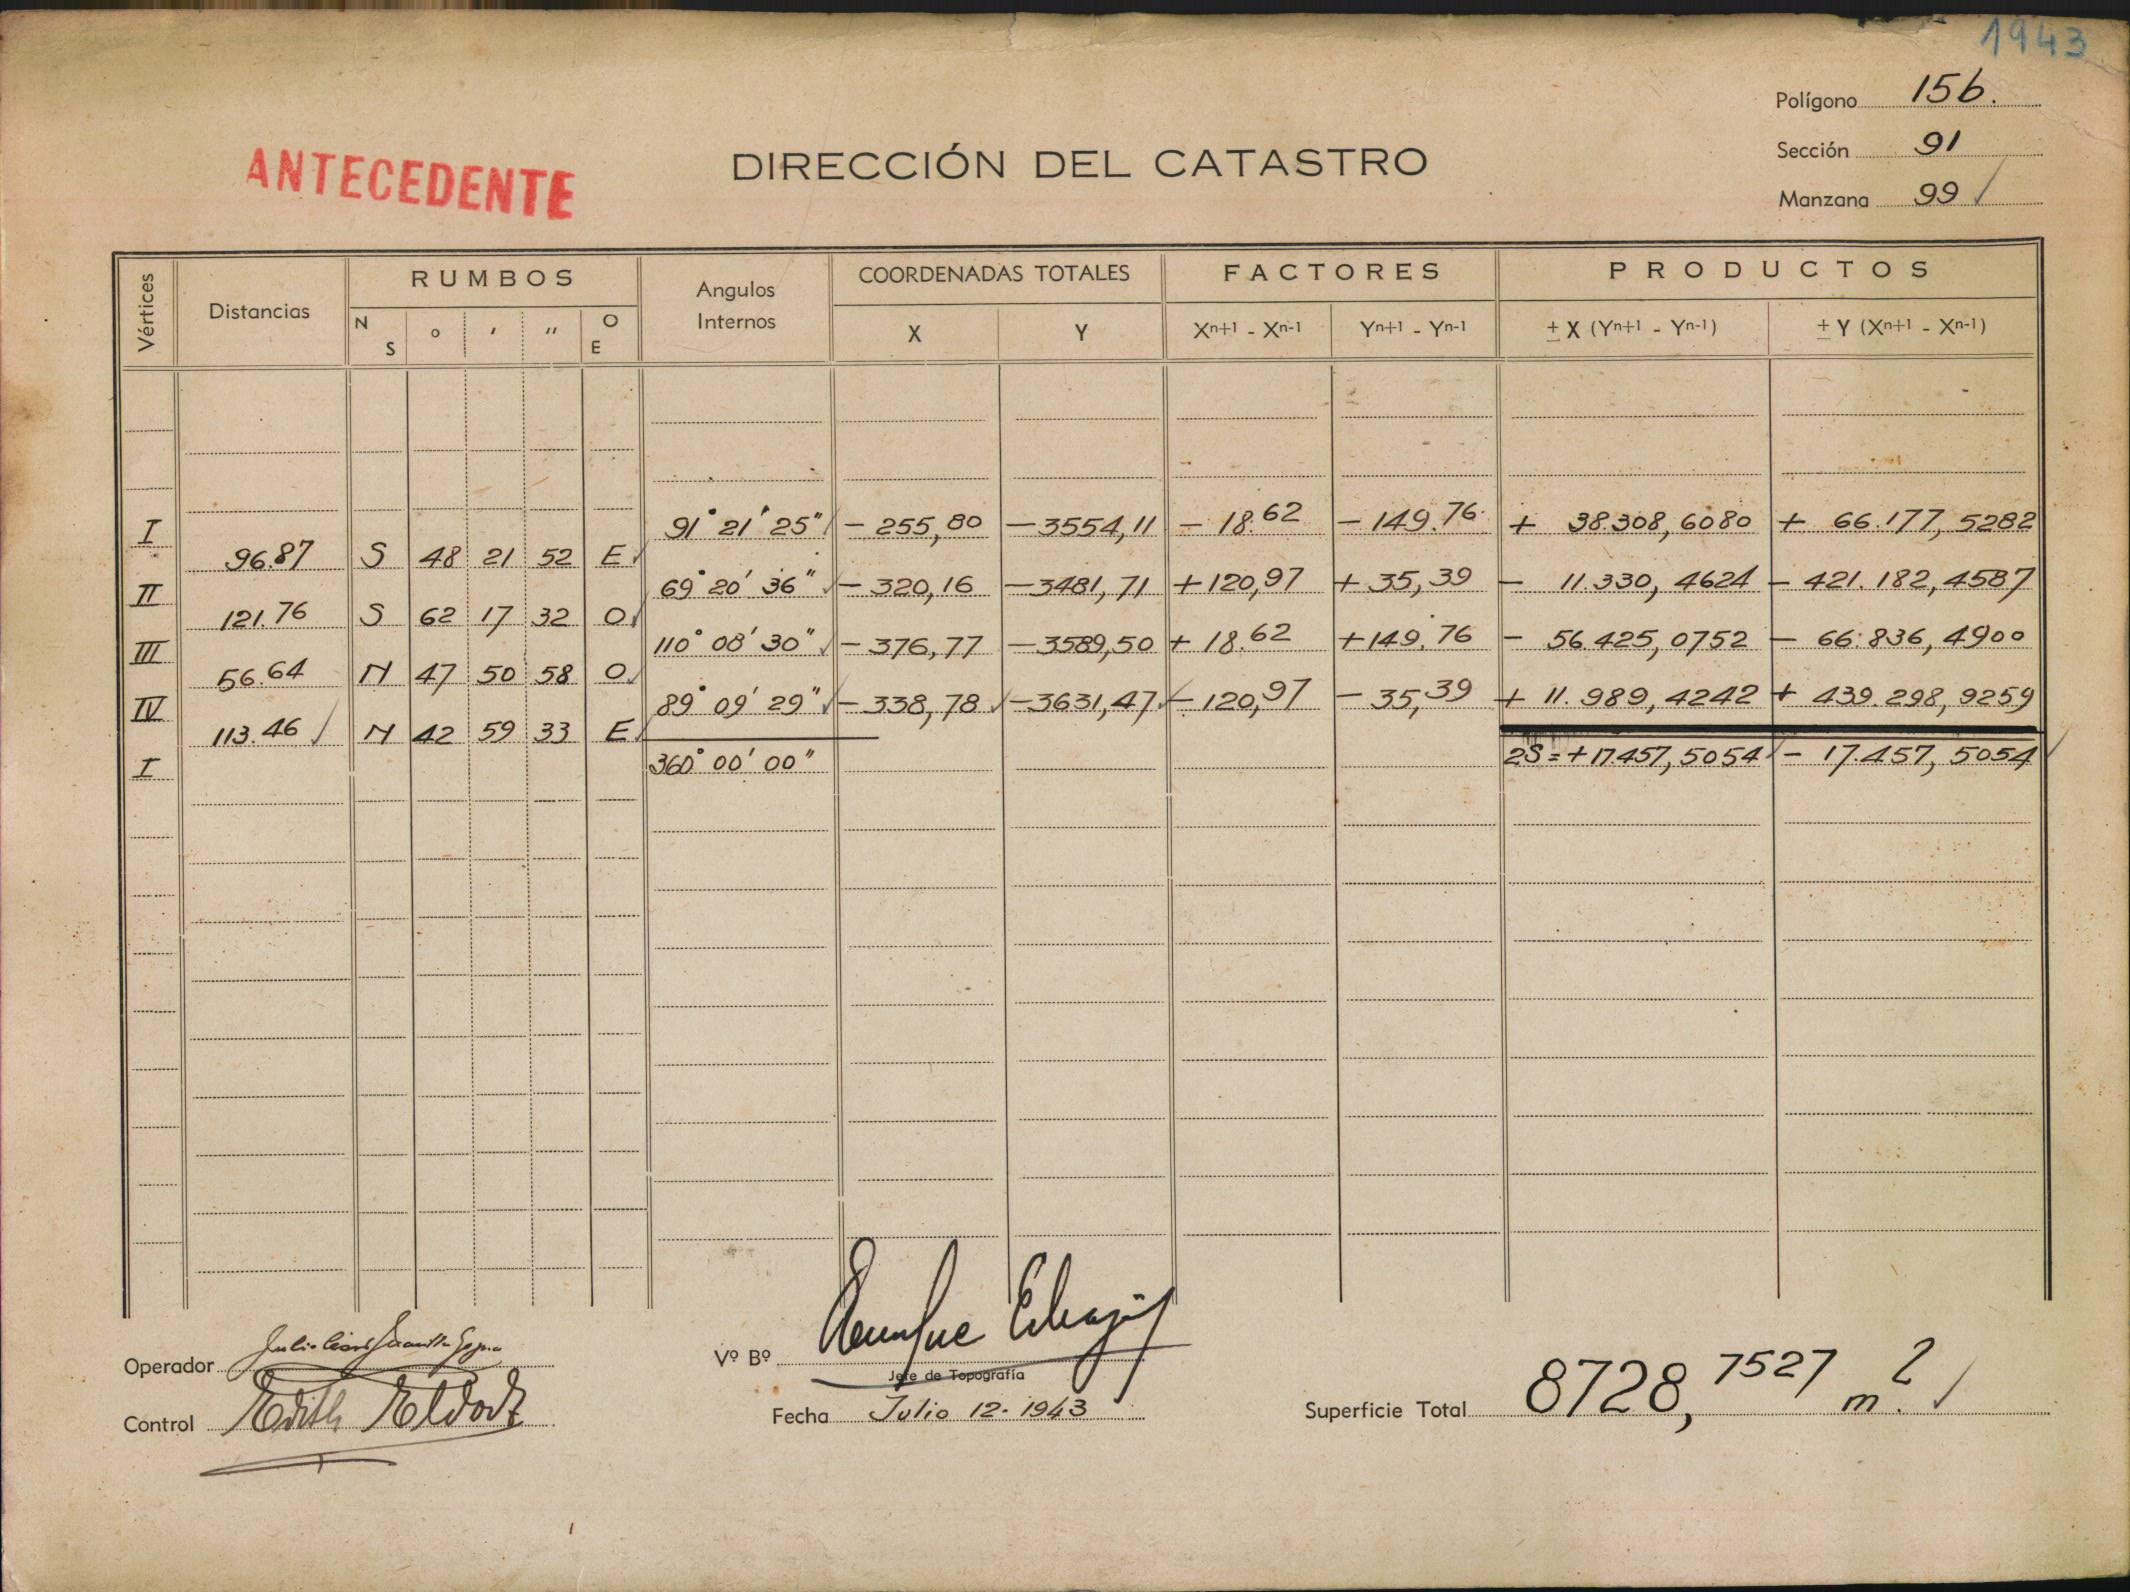 1943
Polígono 156.
Sección 91
Manzana 99 ✓
ANTECEDENTE
DIRECCIÓN DEL CATASTRO
Vértices Distancias RUMBOS Angulos Internos COORDENADAS TOTALES FACTORES PRODUCTOS
N S ° ' '' O E X Y Xn+1 - Xn-1 Yn+1 - Yn-1 ± X (Yn+1 - Yn-1) ± Y (Xn+1 - Xn-1)
I 91° 21' 25" - 255,80 - 3554,11 - 18.62 - 149.76 + 38.308,6080 + 66.177,5282
96.87 S 48 21 52 E
II 69° 20' 36" - 320,16 - 3481,71 + 120,97 + 35,39 - 11.330,4624 - 421.182,4587
121.76 S 62 17 32 O
III 110° 08' 30" - 376,77 - 3589,50 + 18.62 + 149.76 - 56.425,0752 - 66.836,4900
56.64 N 47 50 58 O
IV 89° 09' 29" - 338,78 - 3631,47 - 120,97 - 35,39 + 11.989,4242 + 439.298,9259
113.46 N 42 59 33 E
I 360° 00' 00" 2S = + 17.457,5054 - 17.457,5054
Operador
Vº Bº
Jefe de Topografía
Control Edith
Fecha Julio 12 - 1943
Superficie Total 8728,7527 m². ✓